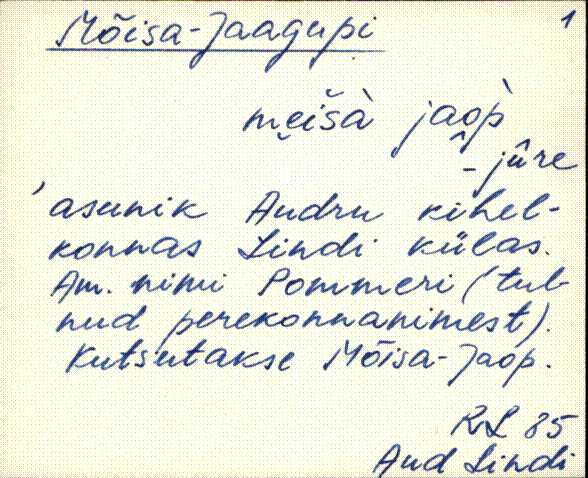 Mõisa-Jaagupi 1
mei̬šà jao̭p̀
- jûre
'asunik Audru kihel-
konnas Lindi külas.
Am. nimi Pommeri (tul-
nud perekonnanimest).
Kutsutakse Mõisa-Jaop.
RL 85
Aud Lindi